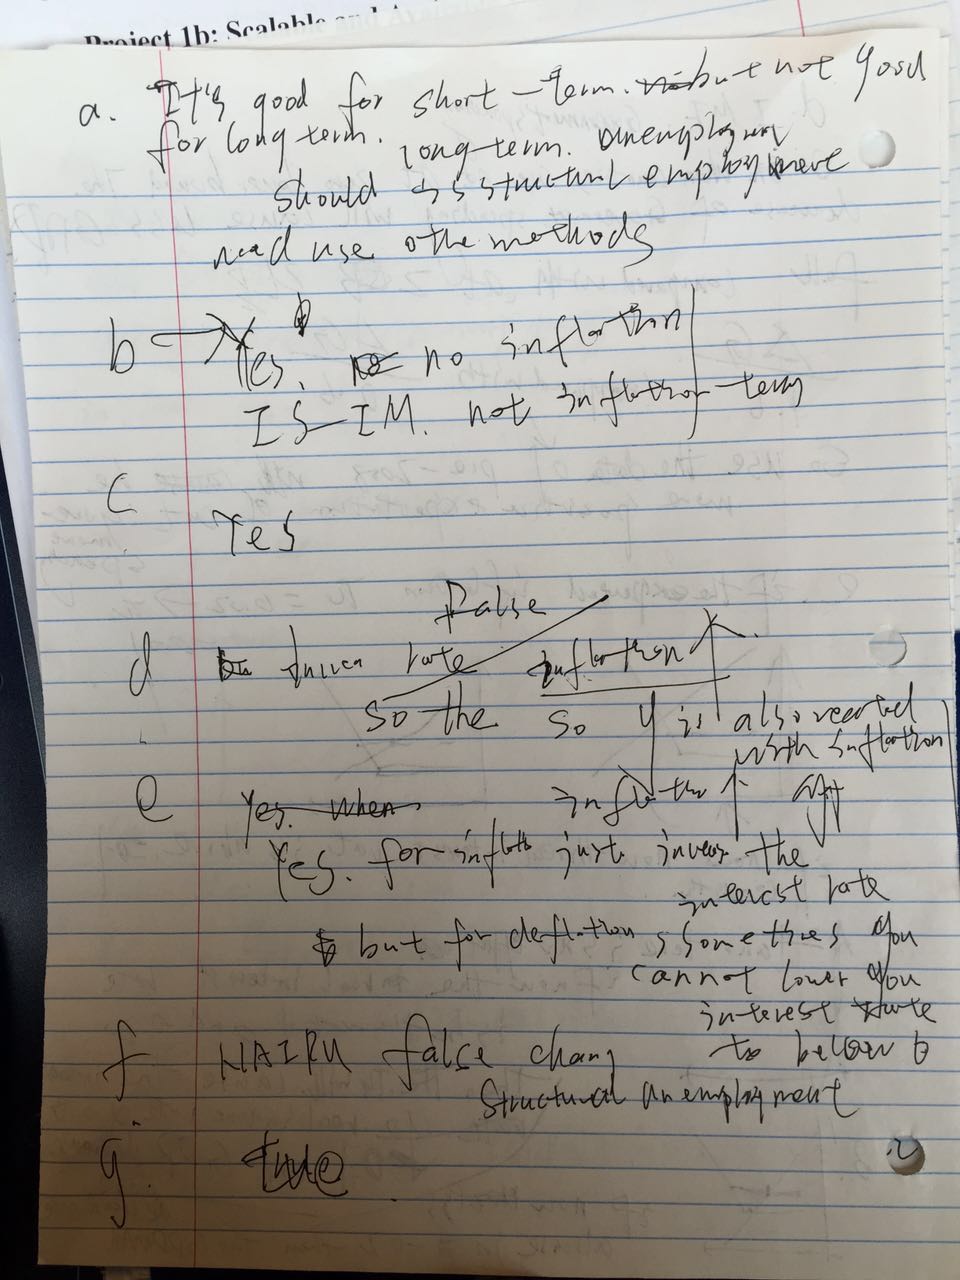 Project 1b: Scalable and
a. It's good for short-term. but not good
for long term. long-term. unemploymen
should is structural employment
need use othe methods
b Yes. no inflation
IS-LM. not inflation-term
c Yes
False
d rate inflation
so the so Y is also rearted
with inflation
e Yes. when
Yes. for inflati just increas the
interest rate
but for deflation, sometimes you
cannot lower you
interest rate
to below 0
f NAIRU false chang
structural unemployment
g. true